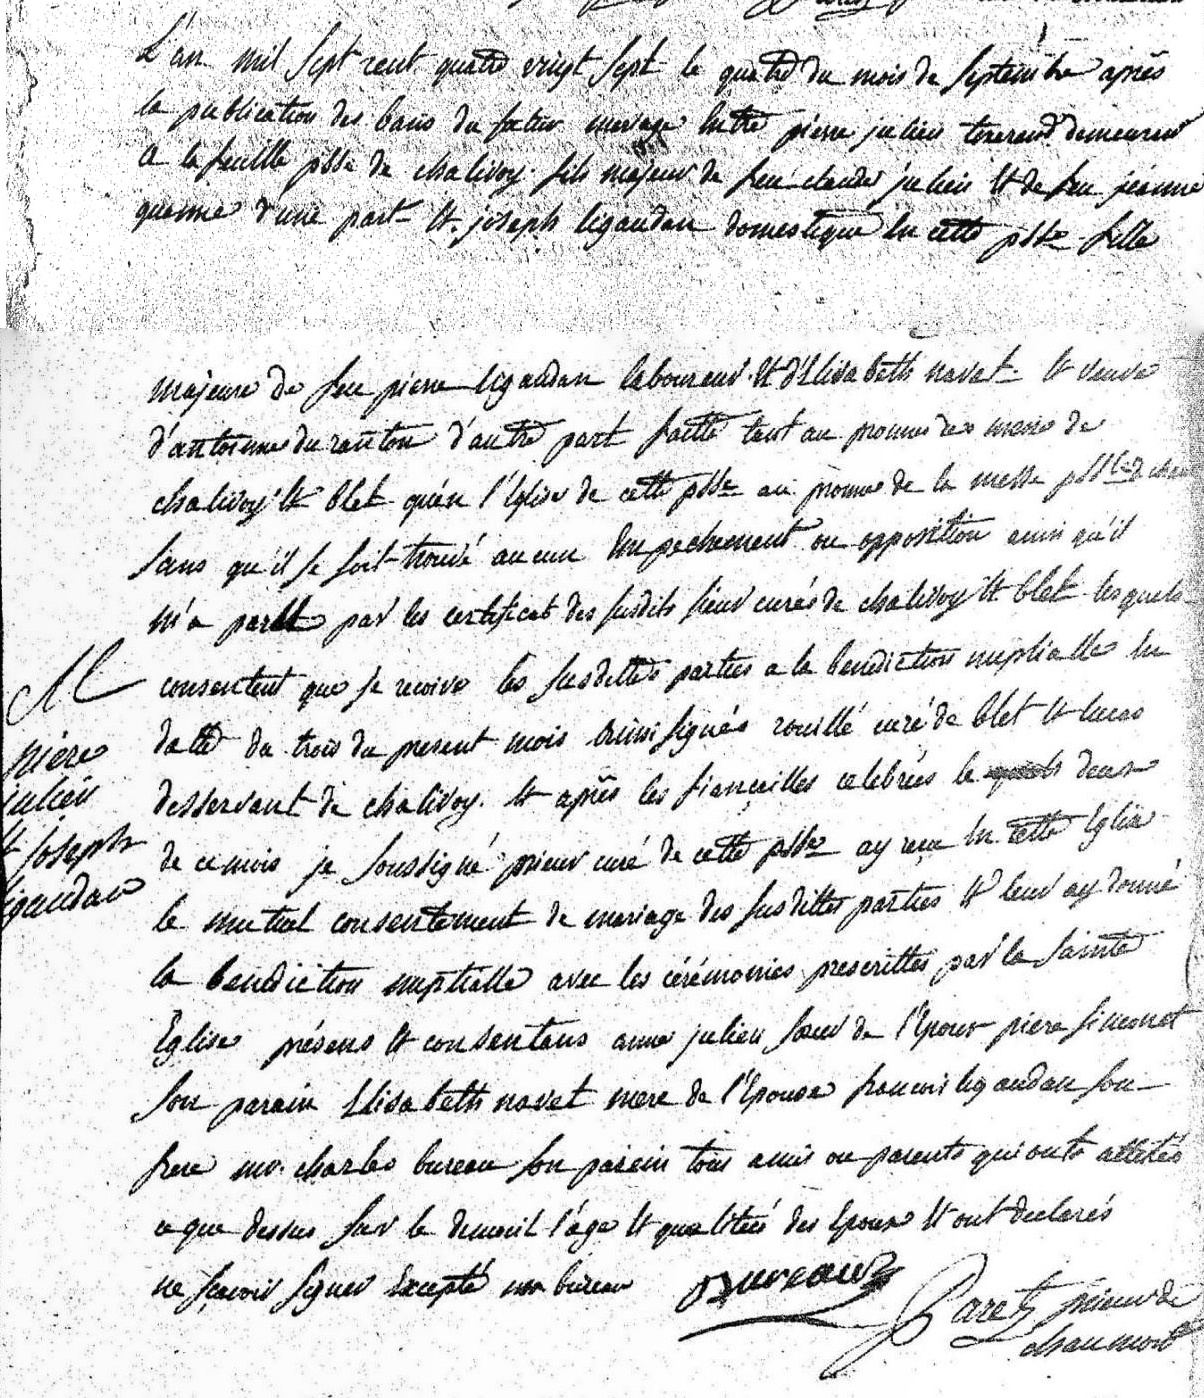 L'an mil sept cent quatre vingt sept le quatre du mois de septembre après
la publication des bans du futur mariage entre pierre julien tixerand demeurant
a la feuille psse de chalivoy. fils majeur de feu claude julien et de feu jeanne
d'une part et. joseph ligaudan domestique en cette psse fille
majeure de feu pierre ligaudan laboureur. et d'Elisabeth navet. et veuve
d'antoinne duranton d'autre part faitte tant au prone des messes de
chalivoy et blet qu'en l'Eglise de cette psse au prone de la messe
sans qu'il se soit trouvé aucun Empechement ou opposition ainsi qu'il
m'a par les certificat des susdits sieur curés de chalivoy et blet lesquels
consentent que je recoive les susdittes parties a la benediction nuptialle en
datte du trois du present mois ainsi signés rouillé curé de blet et lucas
desservant de chalivoy. et après les fiançailles celebrées le deux
de ce mois je soussigné prieur curé de cette psse ay reçu en cette Eglise
le mutuel consentement de mariage des susdittes parties et leur ay donné
la benediction nuptialle avec les cérémonies prescrittes par la sainte
Eglise présens et consentans anne julien sœur de l'Epoux piere simonet
son parain Elisabeth navet mere de l'Epouse francois ligaudan son
frere mr. charles bureau son parain tous amis ou parents qui onts attestés
ce que dessus sur le domicil l'âge et qualitées des Epoux et ont declarés
ne sçavoir signer Excepté mr bureau
M
piere
julien
et joseph
ligaudan
Bureau
Paret prieur de
chaumont